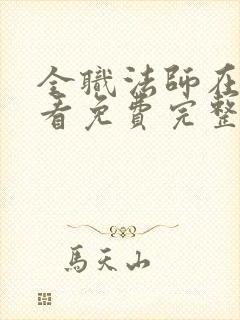 全職法師在
看免費完整
馬天山